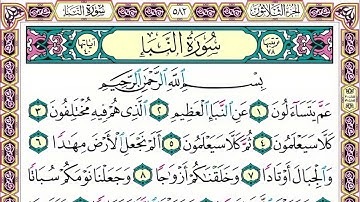 الجزء الثلاثون ٥٨٢ سورة النبأ
سُورَةُ النَّبَإِ
بِسْمِ اللَّهِ الرَّحْمَٰنِ الرَّحِيمِ
عَمَّ يَتَسَاءَلُونَ ١ عَنِ النَّبَإِ الْعَظِيمِ ٢ الَّذِي هُمْ فِيهِ مُخْتَلِفُونَ ٣
كَلَّا سَيَعْلَمُونَ ٤ ثُمَّ كَلَّا سَيَعْلَمُونَ ٥ أَلَمْ نَجْعَلِ الْأَرْضَ مِهَادًا ٦
وَالْجِبَالَ أَوْتَادًا ٧ وَخَلَقْنَاكُمْ أَزْوَاجًا ٨ وَجَعَلْنَا نَوْمَكُمْ سُبَاتًا